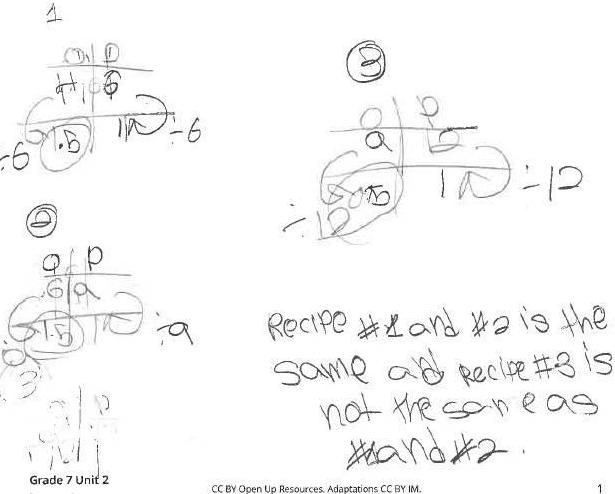 1
O P
6
1.5 1
÷6 ÷6
②
O P
6 9
1.5 1
÷9
3
O P
③
O P
9
1
÷12 ÷12
Recipe #1 and #2 is the
same and Recipe #3 is
not the same as
#1 and #2.
Grade 7 Unit 2
CC BY Open Up Resources. Adaptations CC BY IM.
1